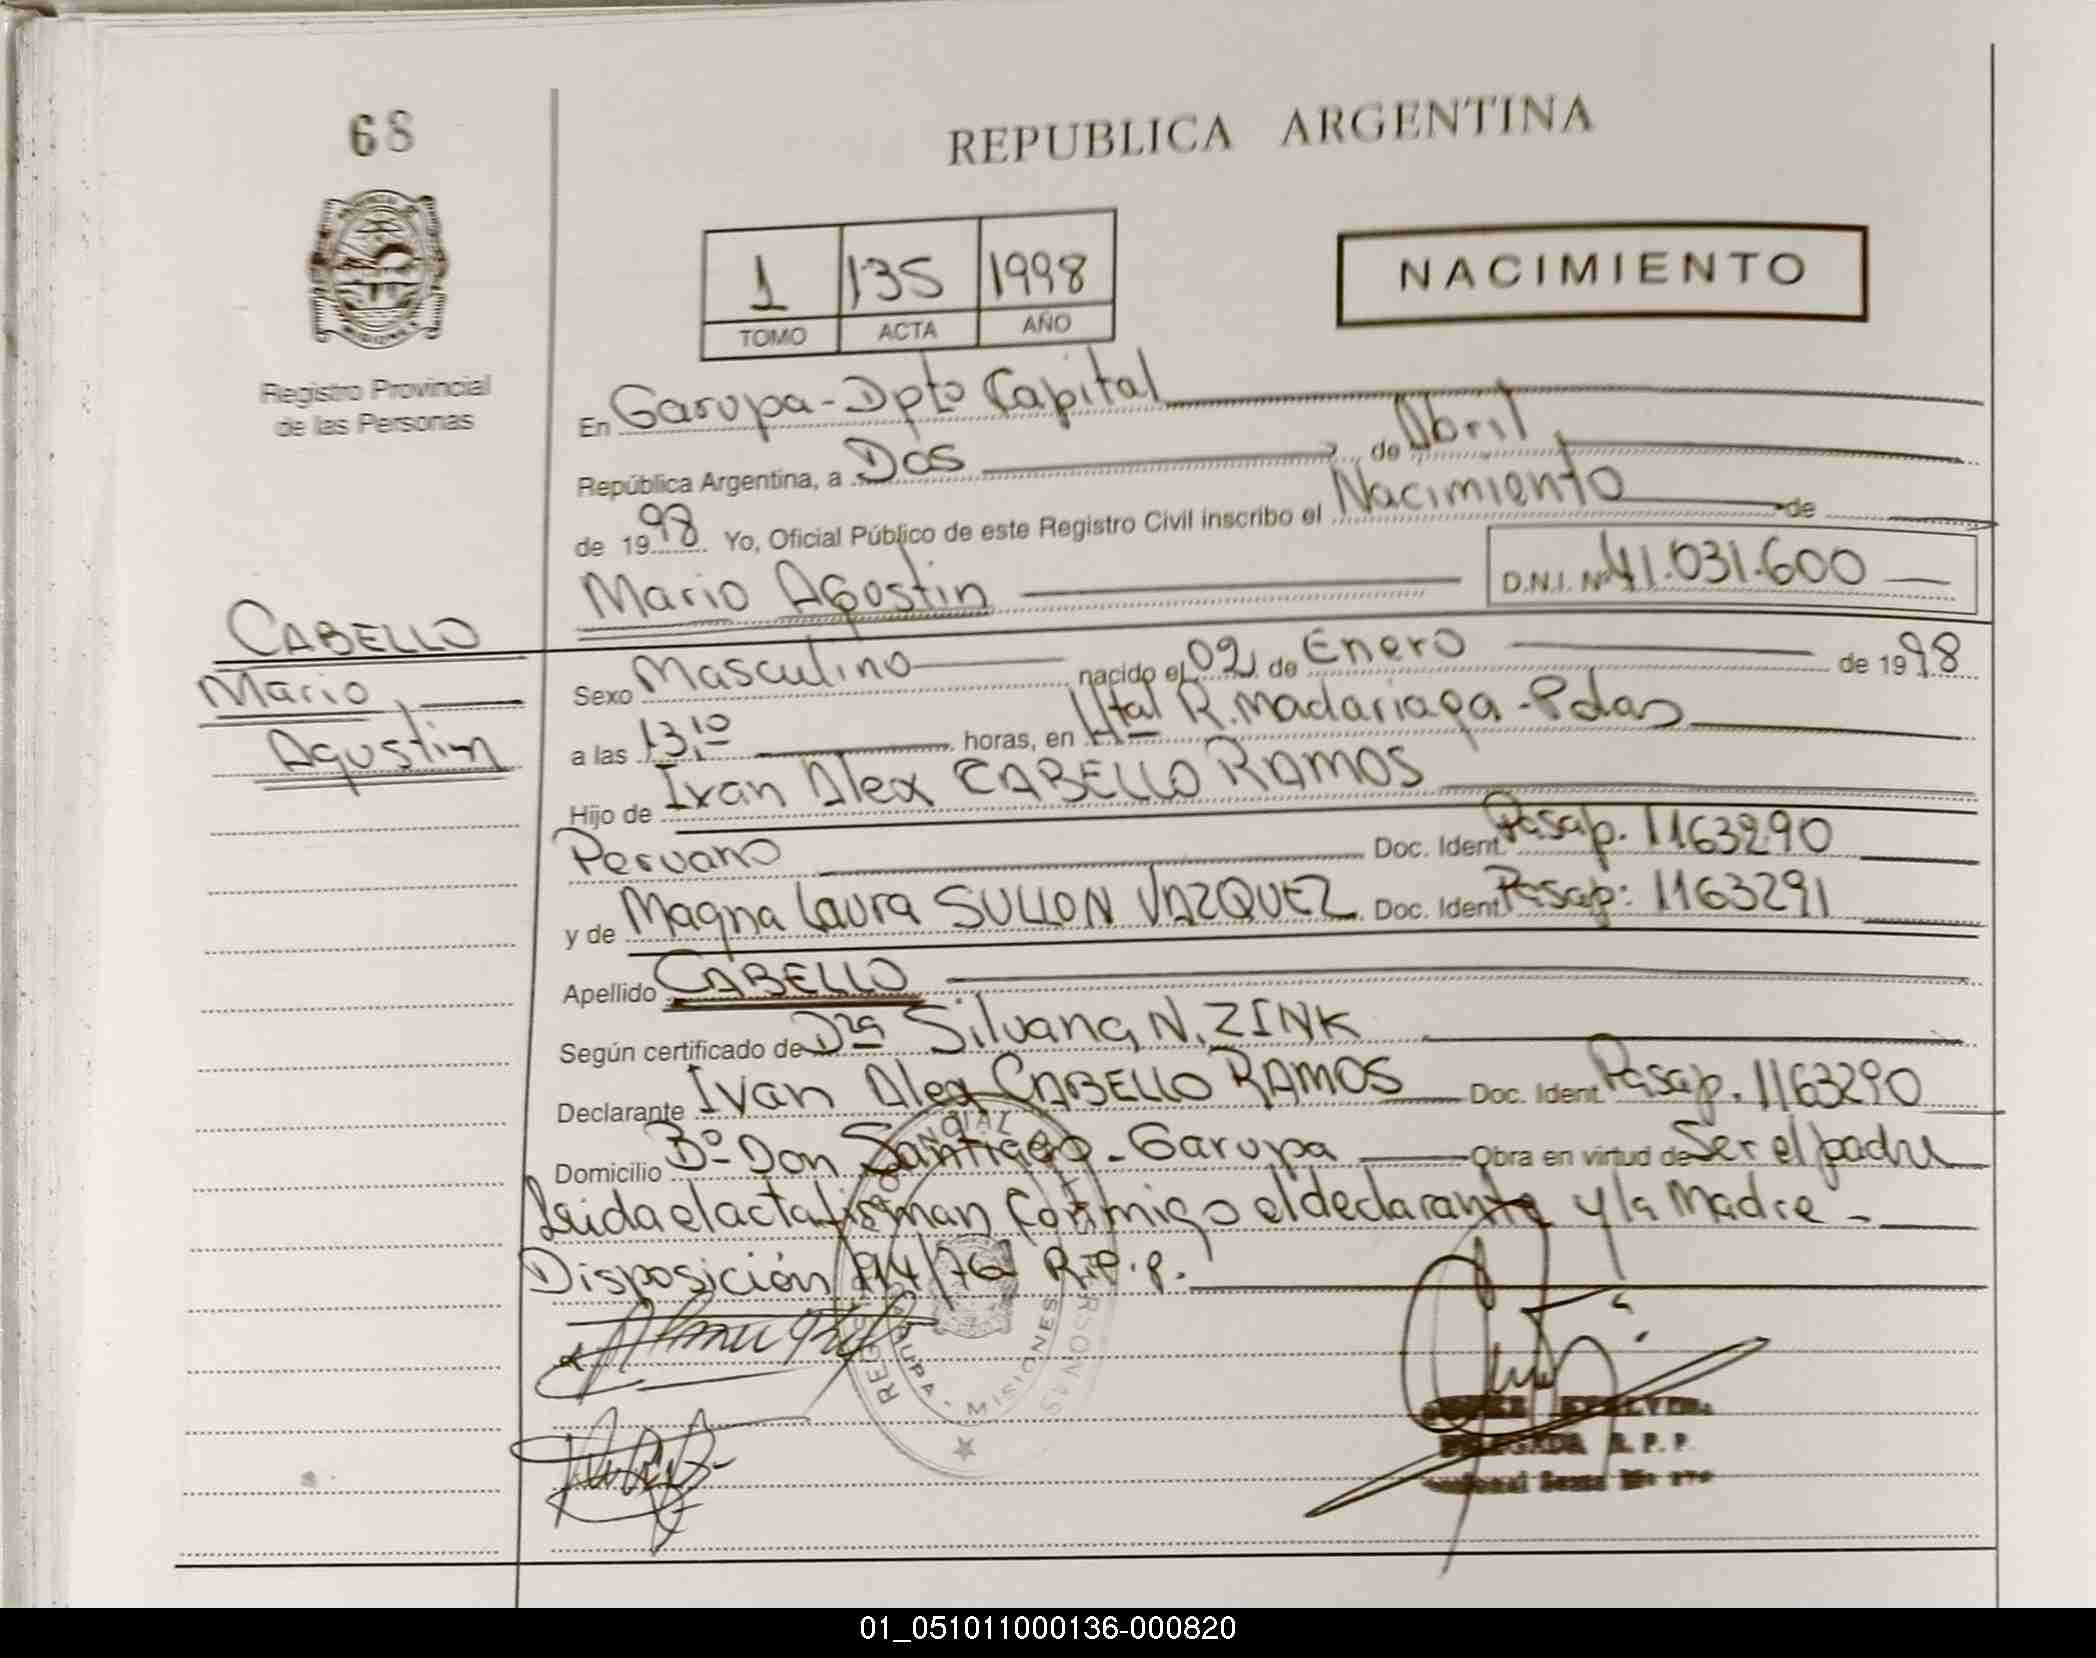 68
REPUBLICA ARGENTINA
1 135 1998
TOMO ACTA AÑO
NACIMIENTO
Registro Provincial
de las Personas
En Garupa - Dpto Capital
República Argentina, a Dos de Abril
de 1998 Yo, Oficial Público de este Registro Civil inscribo el Nacimiento de
Mario Agostin D.N.I. Nº 41.031.600
CABELLO
Mario
Agustin
Sexo Masculino nacido el 02 de Enero de 1998
a las 13,10 horas, en Htal R. Madariaga - Pdas
Hijo de Ivan Alex CABELLO RAMOS
Peruano Doc. Ident. Pasap. 1163290
y de Magna Laura SULLON VAZQUEZ Doc. Ident. Pasap: 1163291
Apellido CABELLO
Según certificado de Dra Silvana, N. ZINK
Declarante Ivan Alex CABELLO RAMOS Doc. Ident. Pasap. 1163290
Domicilio Bº Don Santiago - Garupa Obra en virtud de Ser el padre
Leida el acta firman conmigo el declarante y la Madre -
Disposición 914/76 R.P.P.
GARUPA - MISIONES
DELEGADA R. P. P.
01_051011000136-000820